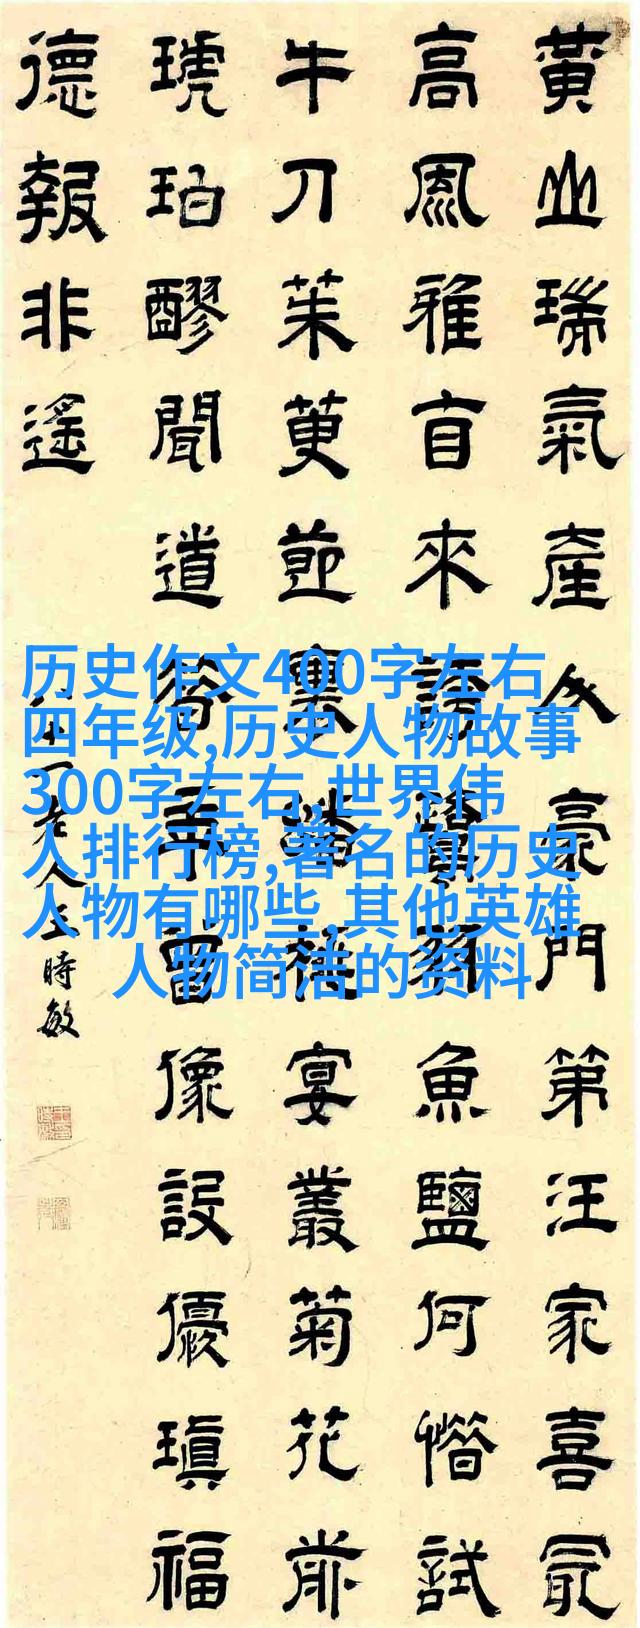 黃山瑞氣產人豪門第汪家喜冣
高風雅盲來魚鹽何惜試
牛刀茱萸節裏宴叢菊花前
琥珀醪聞道曾像設優瑱福
德報非遙
老人王時敏
历史作文400字左右
四年级,历史人物故事
300字左右,世界伟
人排行榜,著名的历史
人物有哪些,其他英雄
人物简洁的资料